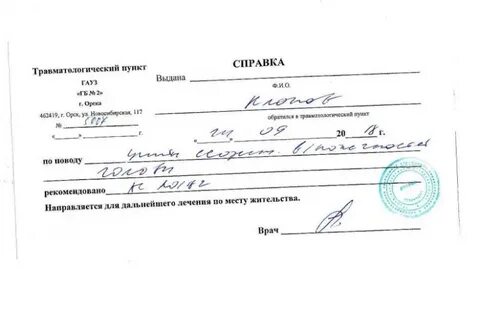 Травматологический пункт
ГАУЗ
«ГБ №2»
г. Орска
462419, г. Орск, ул. Новосибирская, 117
№
СПРАВКА
Выдана Клопов
Ф.И.О.
обратился в травматологический пункт
09 20 18 г.
по поводу ушиб
головы
рекомендовано
Направляется для дальнейшего лечения по месту жительства.
Врач